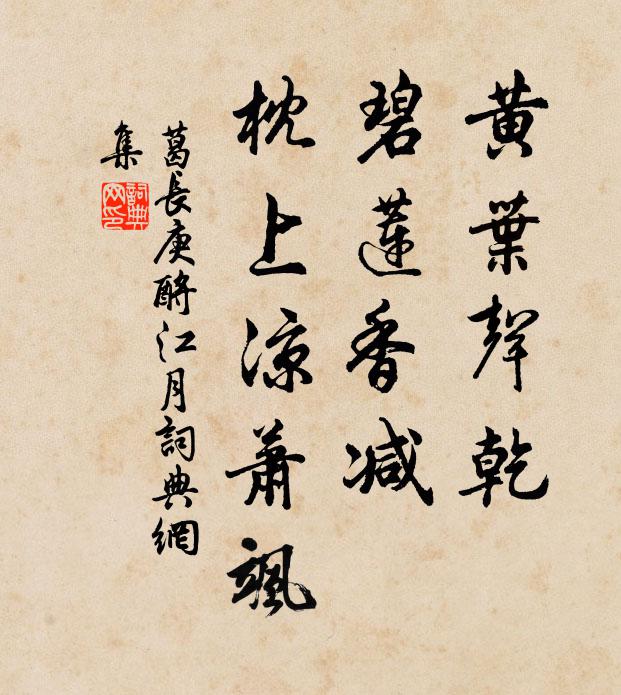 黄葉聲乾
碧蓮香减
枕上凉蕭颯
葛長庚酹江月詞典網
集
詞典
网印